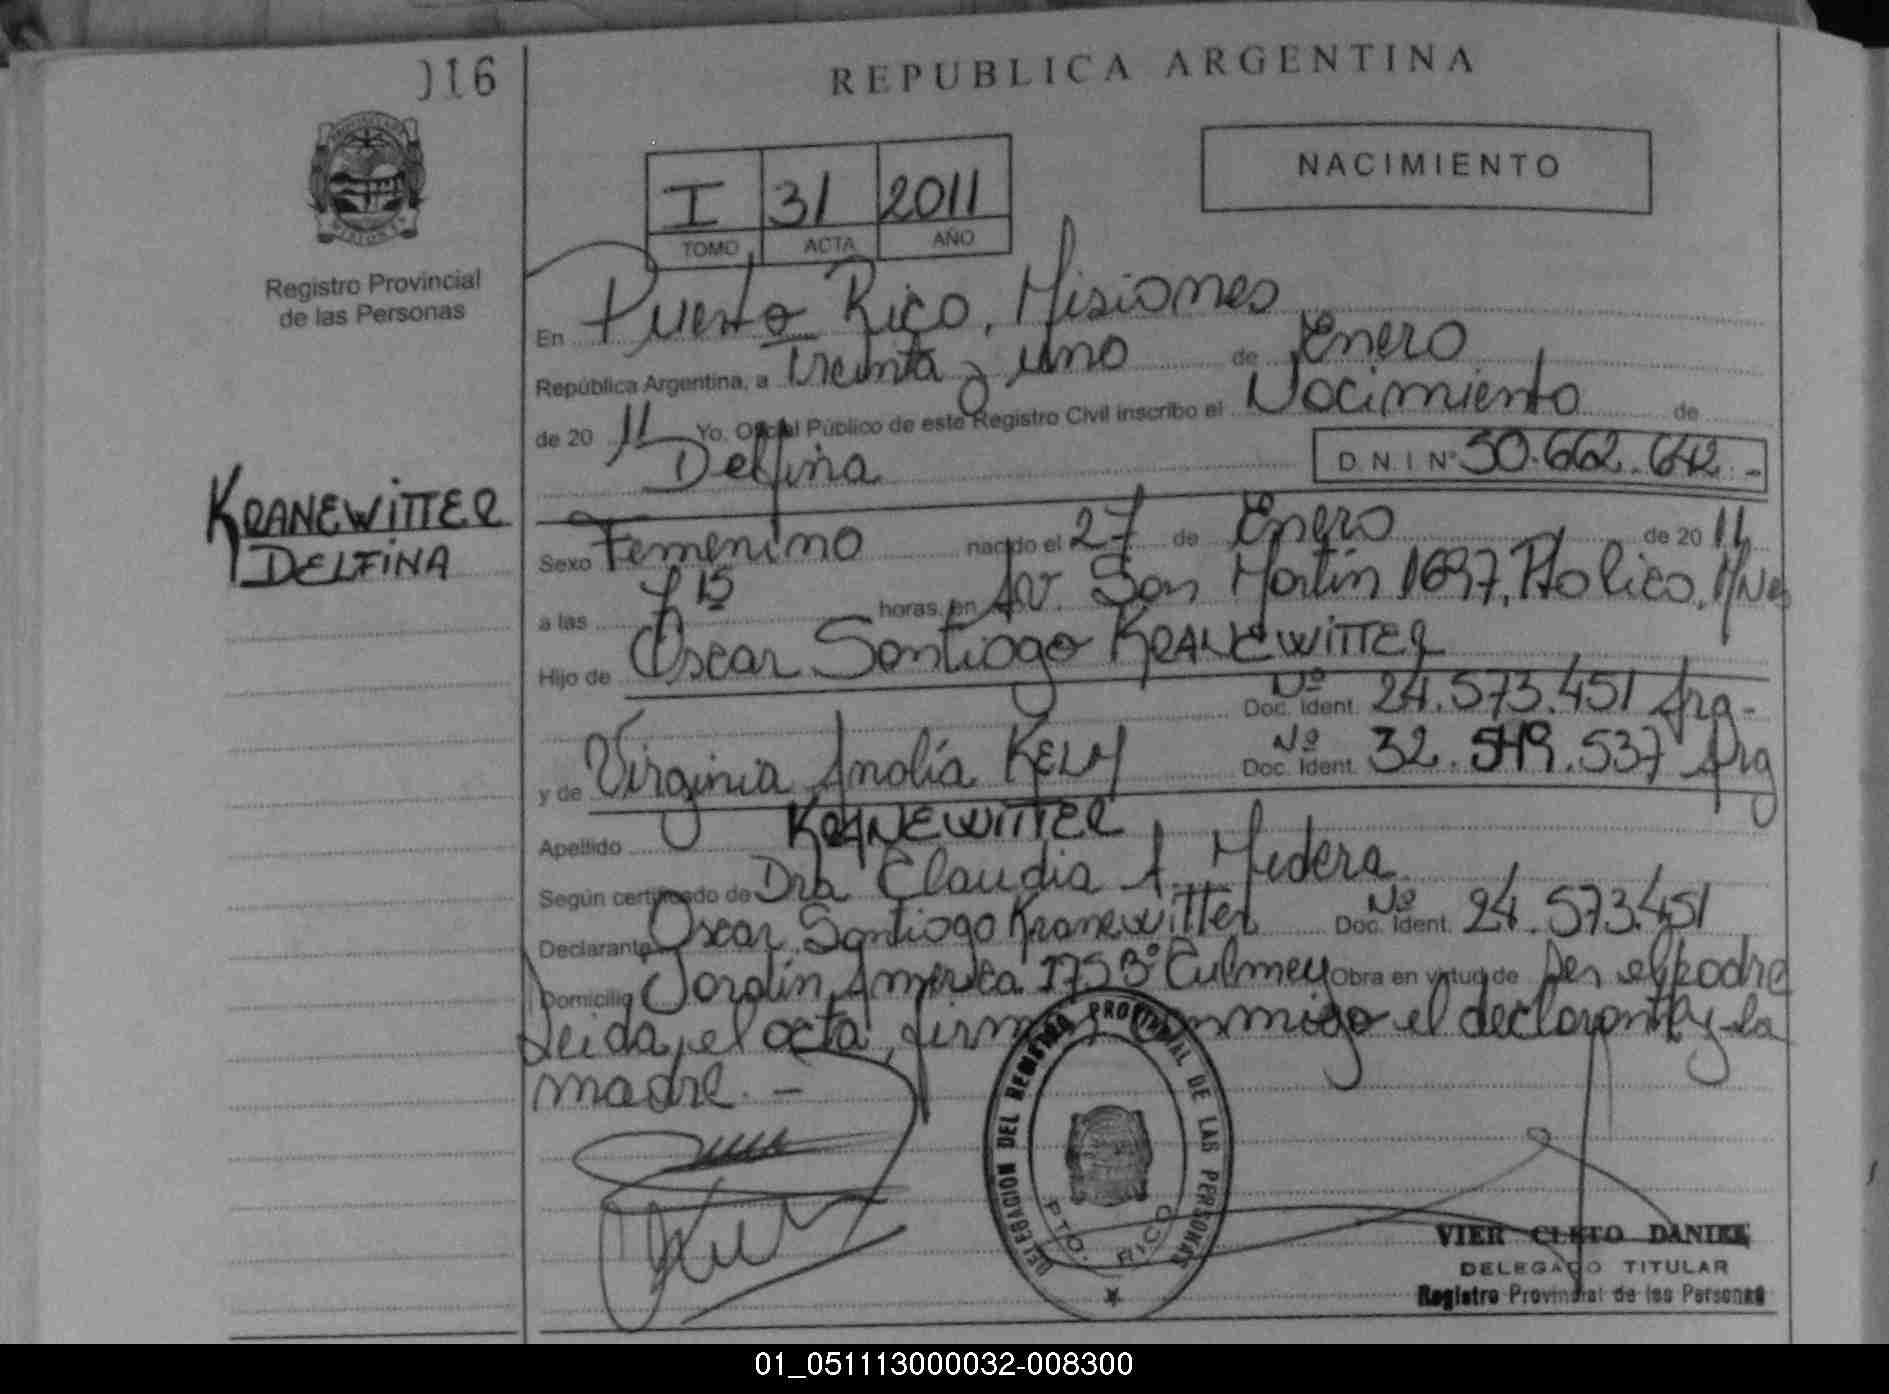 016
REPUBLICA ARGENTINA
NACIMIENTO
I 31 2011
TOMO ACTA AÑO
Registro Provincial
de las Personas
En Puerto Rico, Misiones
República Argentina, a Treinta y uno de Enero
de 20 11 Yo, Oficial Público de este Registro Civil inscribo el Nacimiento de
Delfina D.N.I Nº 50.662.642.-
KRANEWITTER
DELFINA
Sexo Femenino nacido el 27 de Enero de 20 11
a las 15 horas, en Av. San Martín 1697, Pto Rico, Mnes
Hijo de Oscar Santiago KRANEWITTER
Nº
Doc. Ident. 24.573.451 Arg-
y de Virginia Analía KELM Nº Doc. Ident. 32.549.537 Arg
Apellido KRANEWITTER
Según certificado de Dra Claudia A. Medera
Declarante Oscar Santiago Kranewitter Nº Doc. Ident. 24.573.451
Domicilio Jardín América 1753º Culmey Obra en virtud de Ser el padre
Leida, el acta, firman conmigo el declarante y la
madre. -
DELEGACION DEL REGISTRO PROVINCIAL DE LAS PERSONAS
PTO. RICO
VIER CLETO DANIEL
DELEGADO TITULAR
Registro Provincial de las Personas
01_051113000032-008300